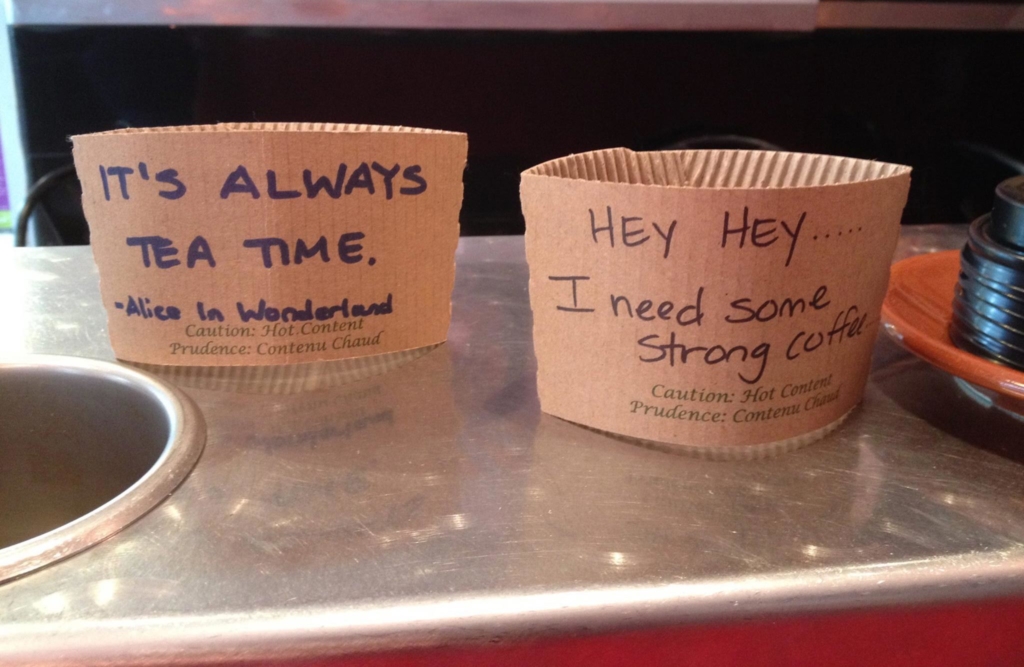 IT'S ALWAYS
TEA TIME.
-Alice In Wonderland
Caution: Hot Content
Prudence: Contenu Chaud
HEY HEY.....
I need some
strong coffee
Caution: Hot Content
Prudence: Contenu Chaud